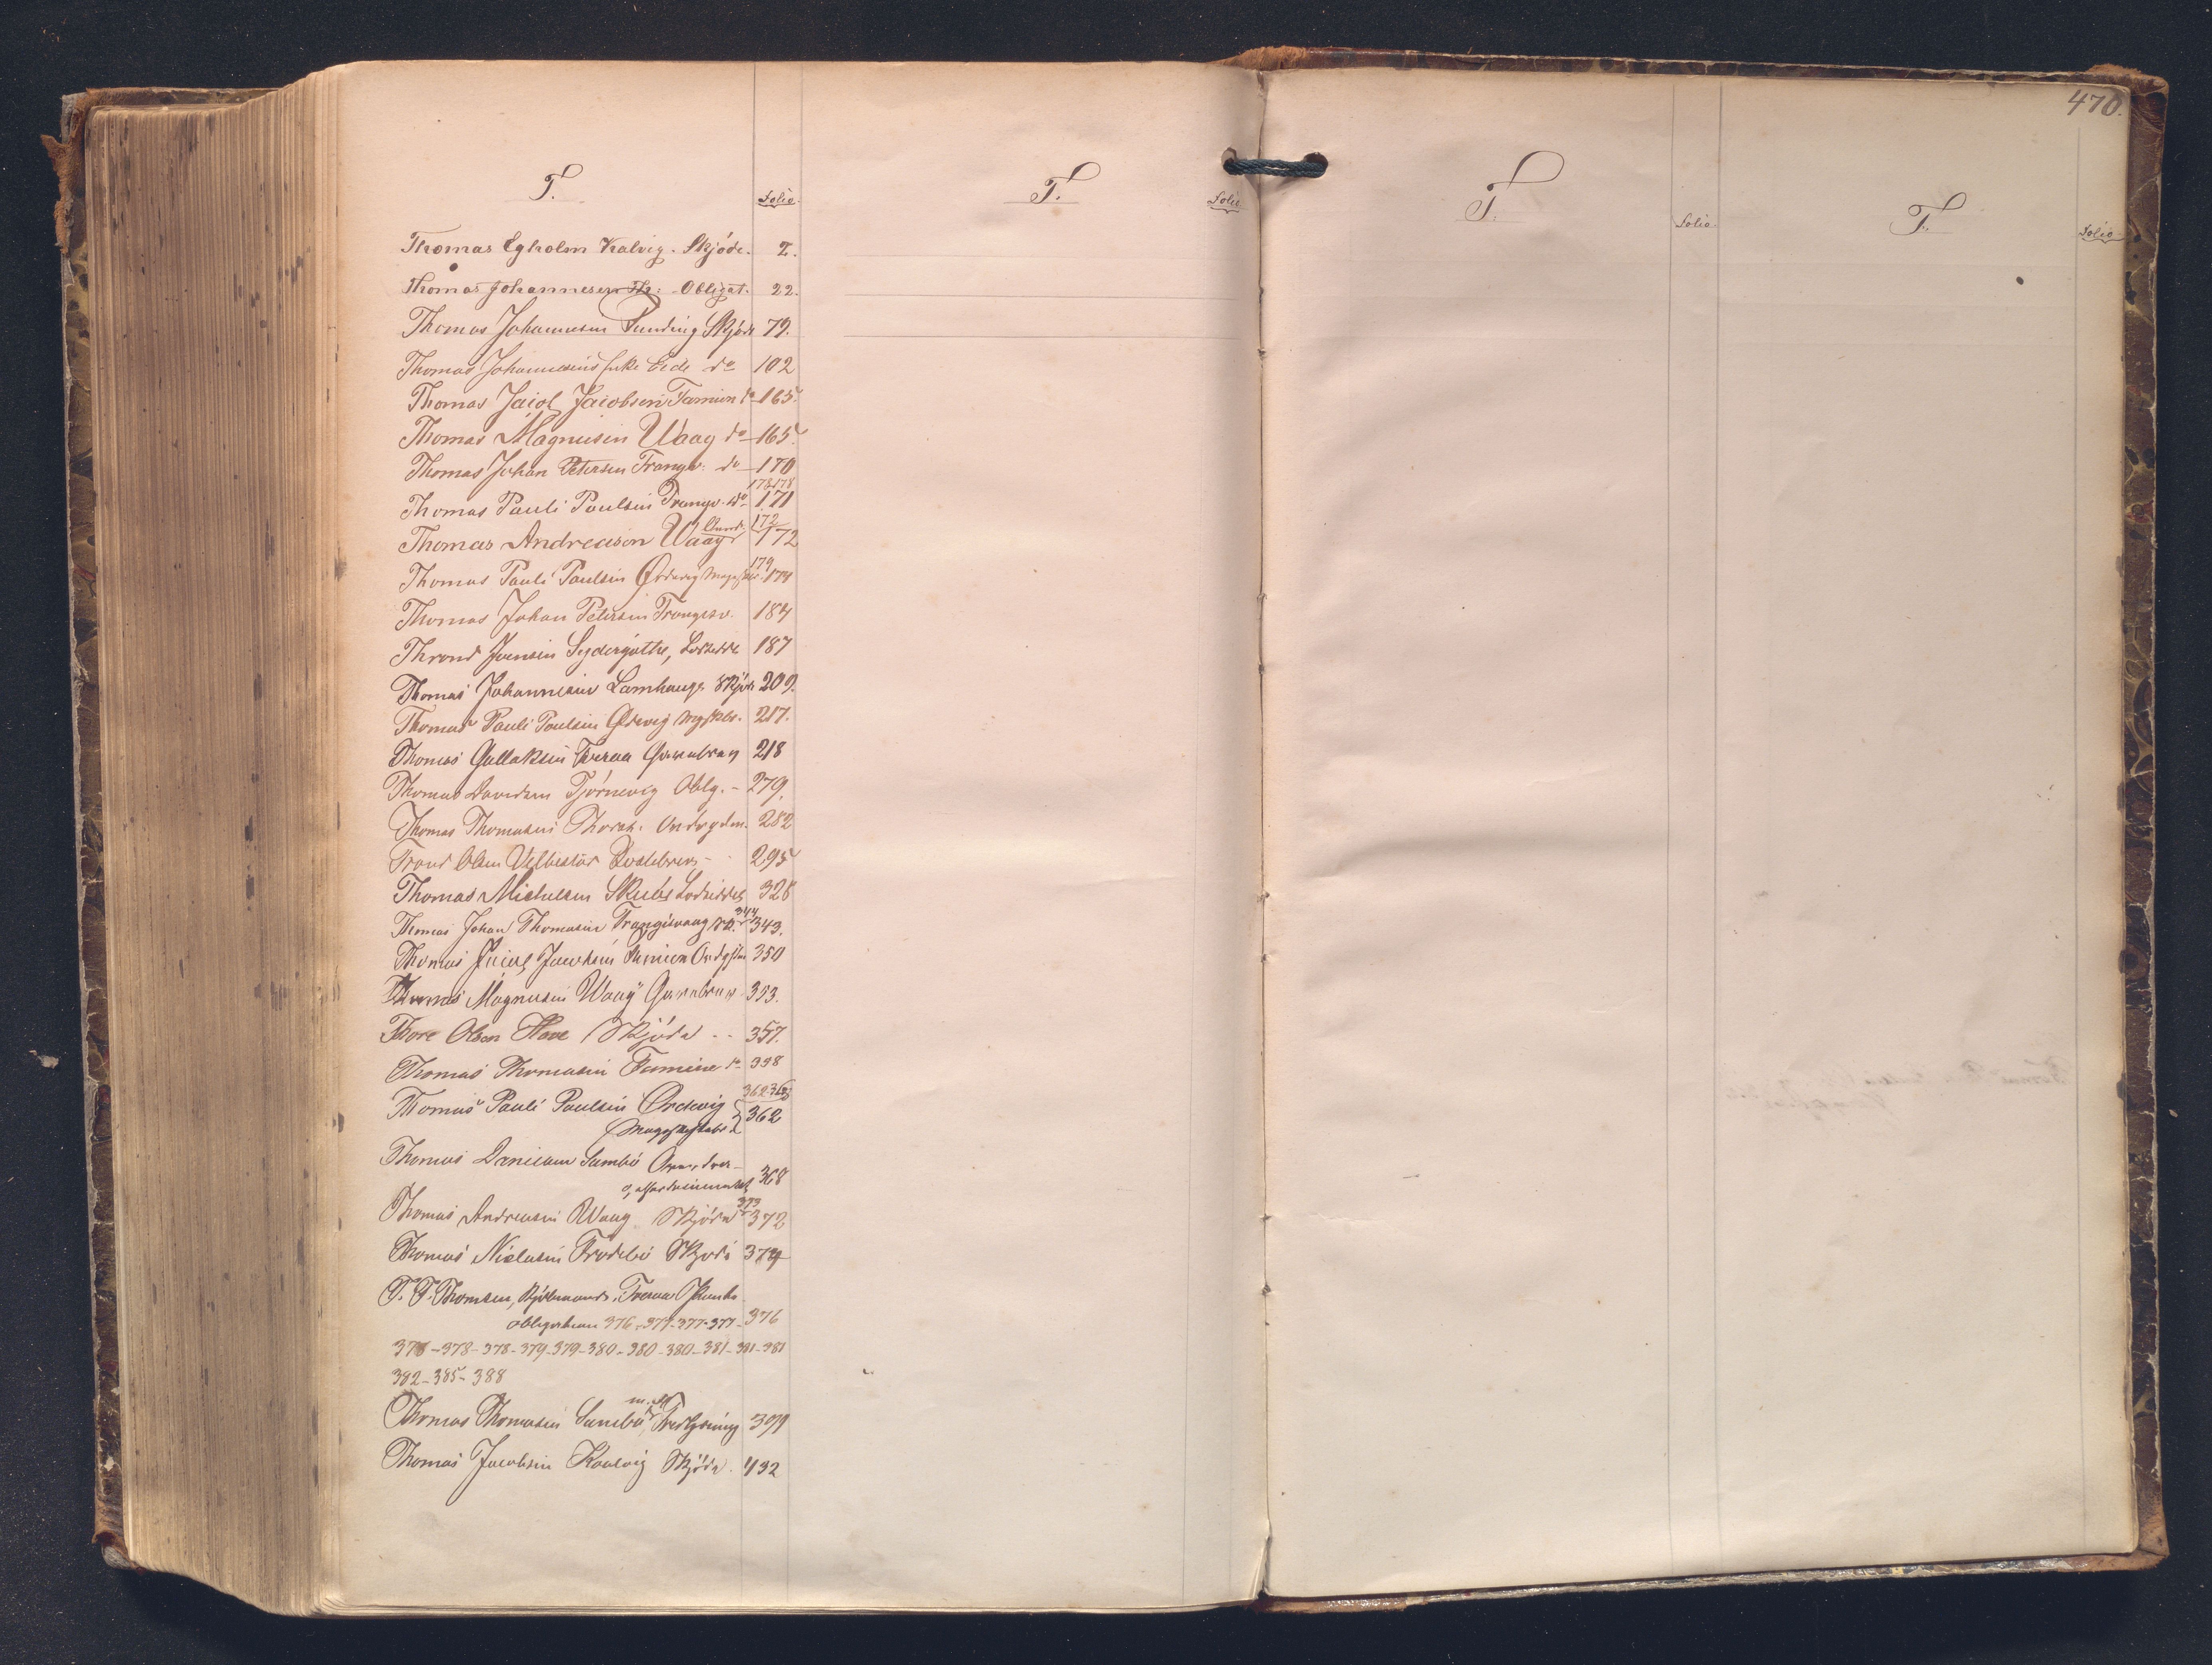 470.
T.
Folio.
T.
Folio
T.
Folio.
T.
Folio.
Thomas Egholm Kalvig. Skjöde. 2.
Thomas Johannesen Obligat. 22.
Thomas Johannesen Punding Skjöde 79.
Thomas Johannesens Enke Eide do 102
Thomas Jacob Jacobsen Famien do 165.
Thomas Magnusen Waag do 165.
Thomas Johan Petersen Trangv. do 170
178 178
Thomas Pauli Poulsen Trangv. do 171
172
Thomas Andreasen Waag 172
174
Thomas Pauli Poulsen Ördevig 174
Thomas Johan Petersen Trangisv. 184
Thrond Joensen Sydergöthe, Lodseddel 187
Thomas Johannesen Lamhauge Skjöde 209.
Thomas Pauli Poulsen Ördevig 217.
Thomas Gullaksen Tveraa 218
Thomas Davidsen Tjörnevig Oblg. - 279.
Thomas Thomasen Thorsh. 282
Trond Olsen Velbestad - 295
Thomas Michelsen Lodseddel 328
344
Thomas Johan Thomasen Trangisvaag 343.
Thomas Jacob Jacobsen Famien 350
Thomas Magnusen Waag 353.
Thore Olsen Skjöde - - 357.
Thomas Thomasen Famien do 358
362 363
Thomas Pauli Poulsen Ördevig 362
Thomas Danielsen Sumbö
368
373
Thomas Andreasen Waag Skjöde 372
Thomas Niclasen Frodebö Skjöde 374
T. F. Thomsen, Kjöbmand, Tveraa
obligation 376-377-377-377- 376
378-378-378-379-379-380-380-380-381-381-381
382-385-388
Thomas Thomasen Sumbö, Fredlysning 399
Thomas Jacobsen Kvalvig Skjöde. 432